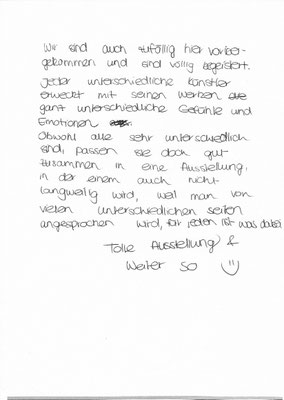 Wir sind auch zufällig hier vorbei-
gekommen und sind völlig begeistert.
Jeder unterschiedliche Künstler
erweckt mit seinen Werken
ganz unterschiedliche Gefühle und
Emotionen
Obwohl alle sehr unterschiedlich
sind, passen sie doch gut
zusammen in eine Ausstellung,
in der einem auch nicht
langweilig wird, weil man von
vielen unterschiedlichen seiten
angesprochen wird, für jeden ist was dabei
Tolle Ausstellung &
Weiter so